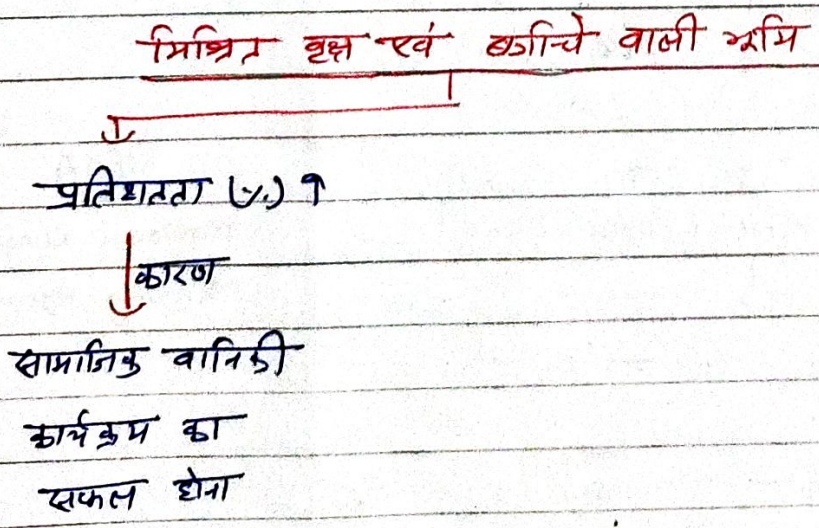 मिश्रित वृक्ष एवं बगीचे वाली भूमि
प्रतिशतता (%) ↑
कारण
सामाजिक वानिकी
कार्यक्रम का
सफल होना